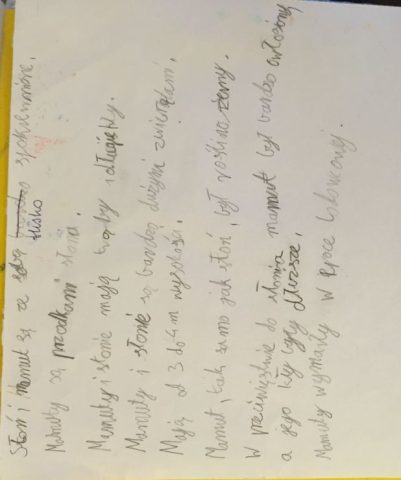 Słoń i mamut są ze sobą bardzo spokrewnione.
blisko
Mamuty są przodkami słonia.
Mamuty i słonie mają trąby i długie kły.
Mamuty i słonie są bardzo dużymi zwierzętami.
Mają od 3 do 4 m wysokości.
Mamut, tak samo jak słoń, był roślinożerny.
W przeciwięstwie do słonia mamut był bardzo owłosiony
a jego kły były dłuższe.
Mamuty wymarły w epoce lodowcowej.